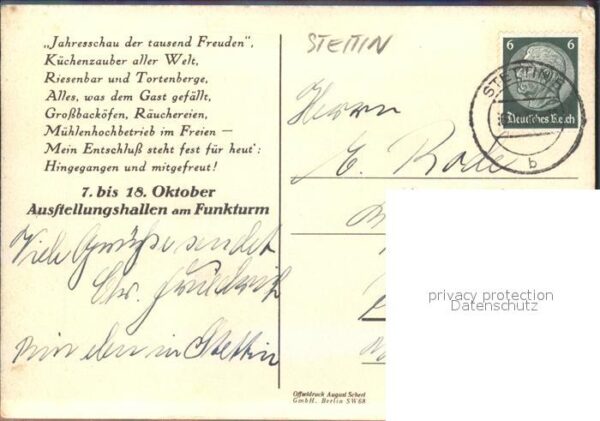 „Jahresschau der tausend Freuden",
Küchenzauber aller Welt,
Riesenbar und Tortenberge,
Alles, was dem Gast gefällt,
Großbacköfen, Räuchereien,
Mühlenhochbetrieb im Freien —
Mein Entschluß steht fest für heut':
Hingegangen und mitgefreut!
7. bis 18. Oktober
Ausstellungshallen am Funkturm
Viele Grüße sendet
Chr. Friedrich
nun eben in Stettin
STETTIN
Herrn
E. Rode
6 6
Deutsches Reich
STETTIN
b
privacy protection
Datenschutz
Offsetdruck August Scherl
GmbH. Berlin SW 68